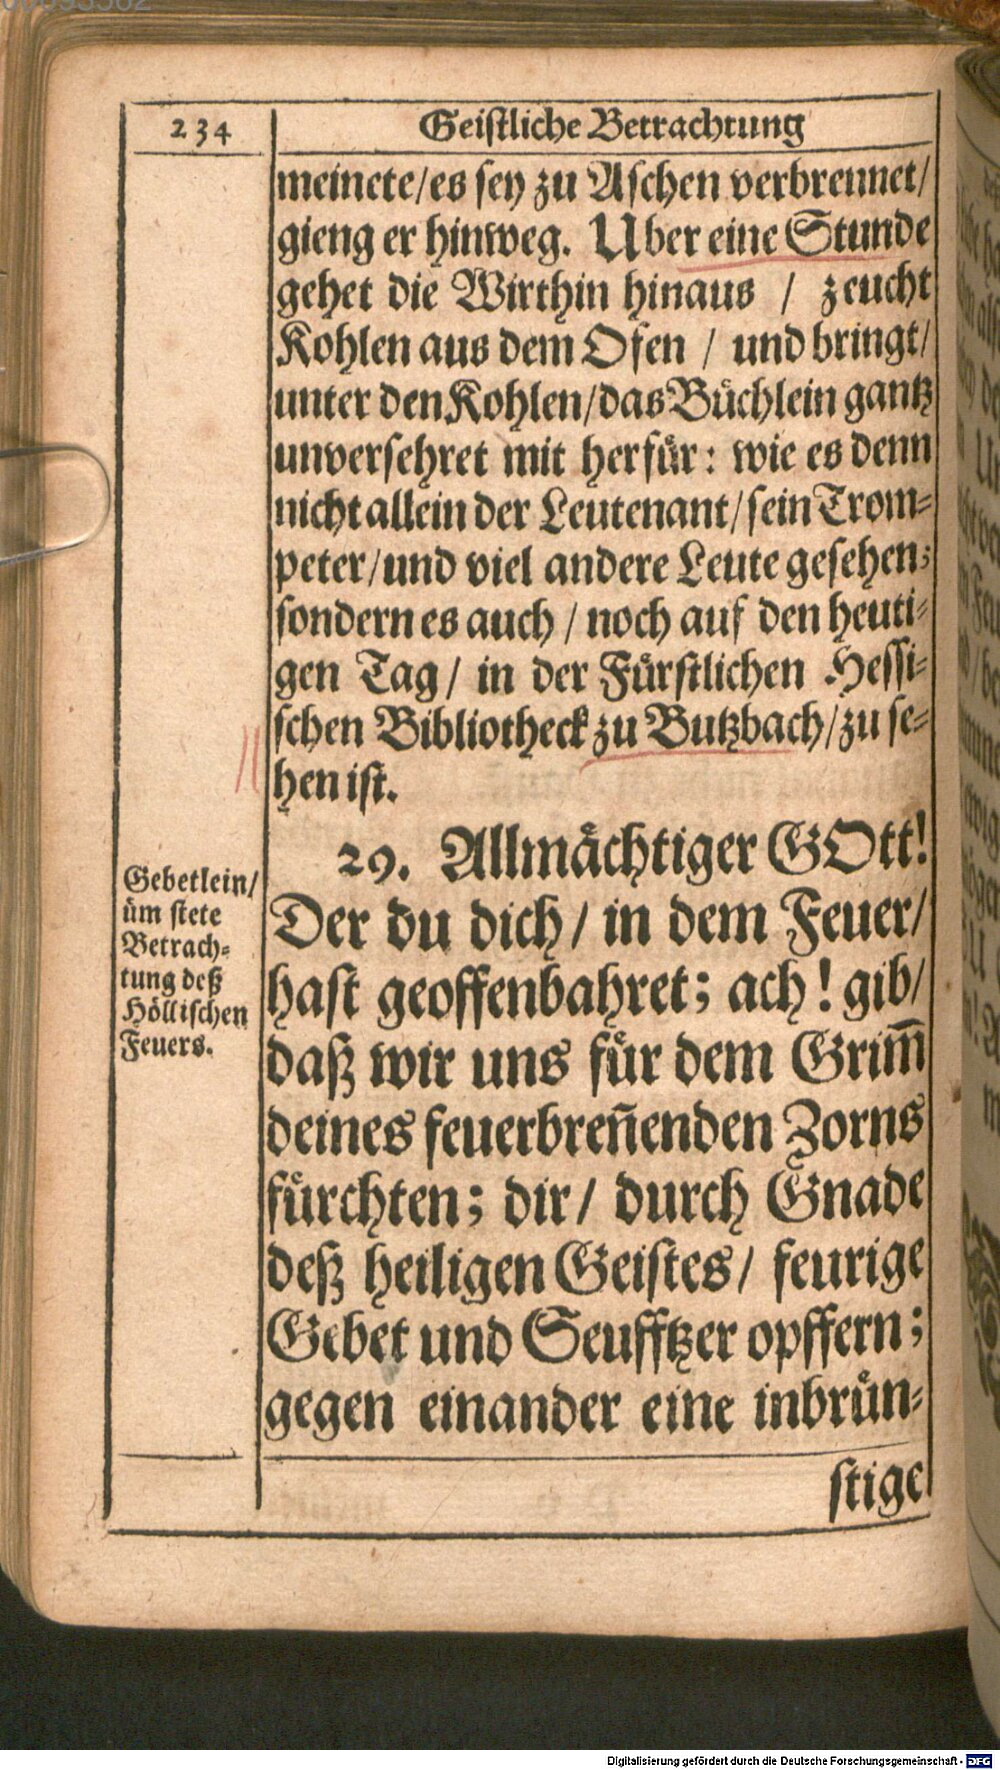 234
Geistliche Betrachtung
meinete/es sey zu Aschen verbrennet/
gieng er hinweg. Uber eine Stunde
gehet die Wirthin hinaus / zeucht
Kohlen aus dem Ofen / und bringt/
unter den Kohlen/das Büchlein gantz
unversehret mit herfür: wie es denn
nicht allein der Leutenant/sein Trom=
peter/und viel andere Leute gesehen;
sondern es auch / noch auf den heuti=
gen Tag/ in der Fürstlichen Hessi=
schen Bibliotheck zu Butzbach/zu se=
hen ist.
29. Allmächtiger GOtt!
Der du dich/ in dem Feuer/
hast geoffenbahret; ach! gib/
daß wir uns für dem Grim̅
deines feuerbren̅enden Zorns
fürchten; dir/ durch Gnade
deß heiligen Geistes/ feurige
Gebet und Seufftzer opffern;
gegen einander eine inbrün=
stige
Gebetlein/
üm stete
Betrach=
tung deß
Höllischen
Feuers.
Digitalisierung gefördert durch die Deutsche Forschungsgemeinschaft - DFG